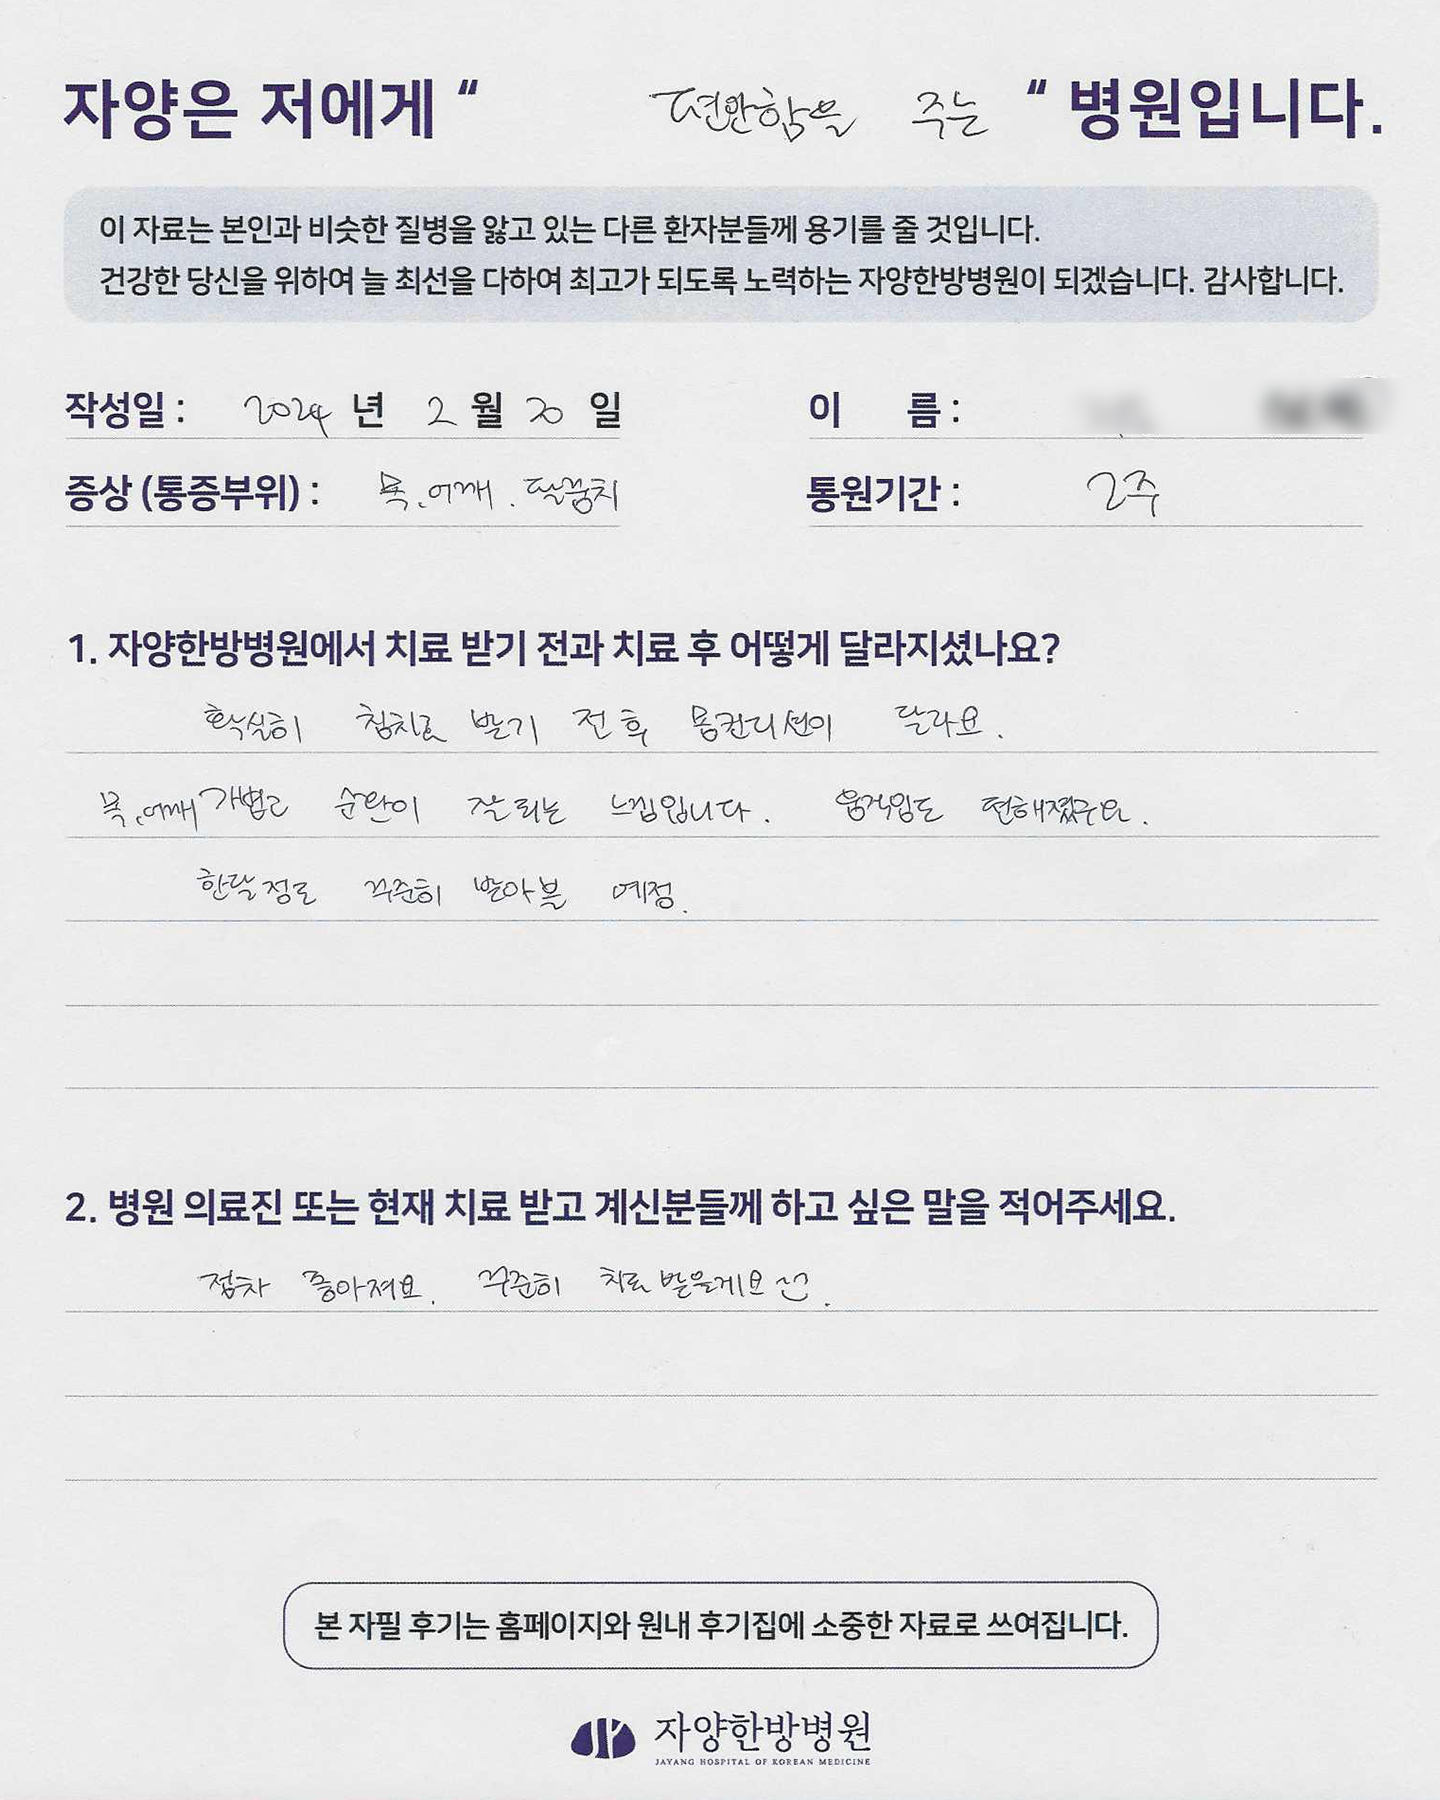 자양은 저에게 “ 편안함을 주는 “ 병원입니다.
이 자료는 본인과 비슷한 질병을 앓고 있는 다른 환자분들께 용기를 줄 것입니다.
건강한 당신을 위하여 늘 최선을 다하여 최고가 되도록 노력하는 자양한방병원이 되겠습니다. 감사합니다.
작성일 : 2024 년 2 월 20 일 이 름 :
증상 (통증부위) : 목. 어깨. 팔꿈치 통원기간 : 2주
1. 자양한방병원에서 치료 받기 전과 치료 후 어떻게 달라지셨나요?
확실히 침치료 받기 전 후 몸컨디션이 달라요.
목.어깨 가볍고 순환이 잘 되는 느낌입니다. 움직임도 편해졌구요.
한달정도 꾸준히 받아볼 예정.
2. 병원 의료진 또는 현재 치료 받고 계신분들께 하고 싶은 말을 적어주세요.
점차 좋아져요. 꾸준히 치료 받을게요.
본 자필 후기는 홈페이지와 원내 후기집에 소중한 자료로 쓰여집니다.
자양한방병원
JAYANG HOSPITAL OF KOREAN MEDICINE